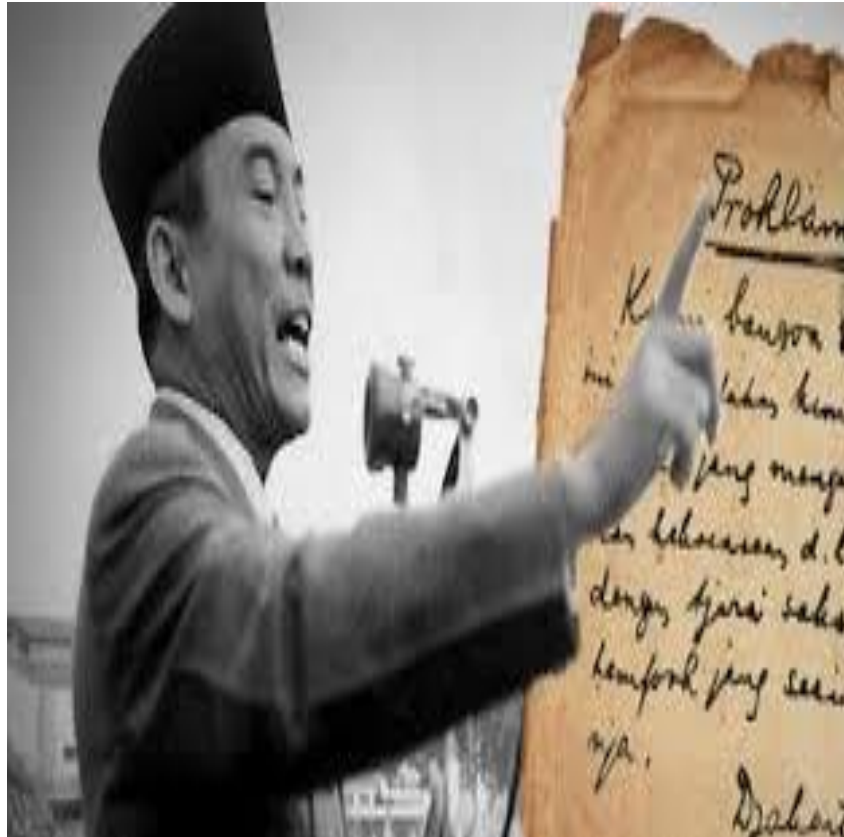 Proklam
K... bangsa
ini ...akan kem
jang menge
kekoeasaan d.l
dengan tjara saks
tempoh jang sesin
nja.
Djakart